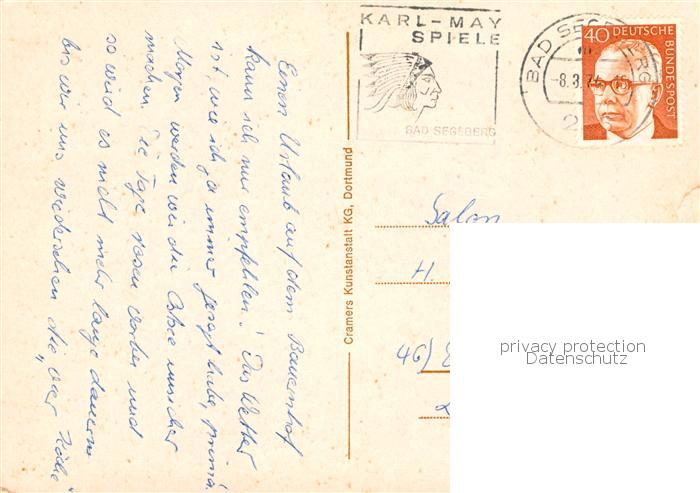 KARL-MAY
SPIELE
BAD SEGEBERG
BAD SEGEBERG
-8.3.74
2
40 DEUTSCHE
BUNDESPOST
Einen Urlaub auf dem Bauernhof
kann ich nur empfehlen! Das Wetter
ist, wie ich ja immer gesagt habe, prima.
Morgen werden wir die Ostsee unsicher
machen. Die Tage rasen vorbei und
so wird es nicht mehr lange dauern
bis wir uns wiedersehen die
Cramers Kunstanstalt KG, Dortmund
Salon
H.
46)
privacy protection
Datenschutz